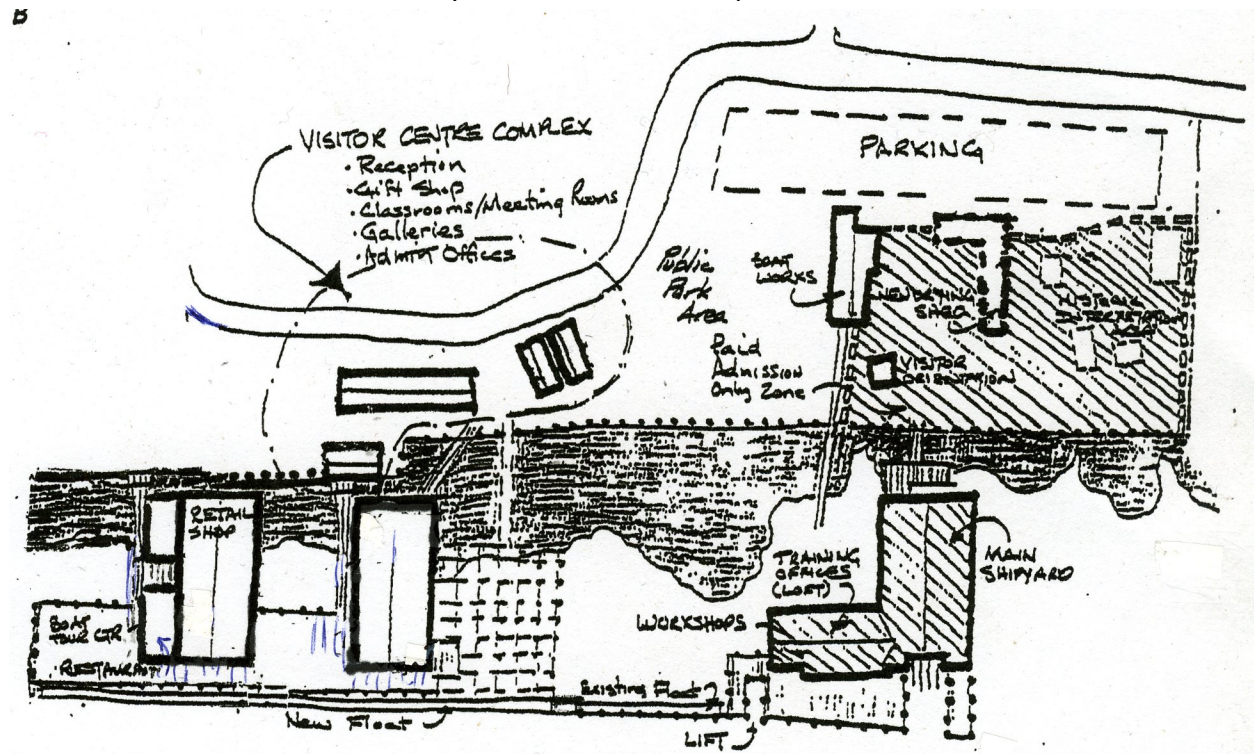 B
VISITOR CENTRE COMPLEX
• Reception
• Gift Shop
• Classrooms/Meeting Rooms
• Galleries
• Admin Offices
PARKING
Public
Park
Area
BOAT
WORKS
NEW DRYING
SHED
HISTORIC
INTERPRETATION
AREA
Paid
Admission
Only Zone
VISITOR
ORIENTATION
RETAIL
SHOP
TRAINING
OFFICES
(LOFT)
MAIN
SHIPYARD
WORKSHOPS
BOAT
TOUR CTR.
• RESTAURANT
Existing Float
New Float
LIFT